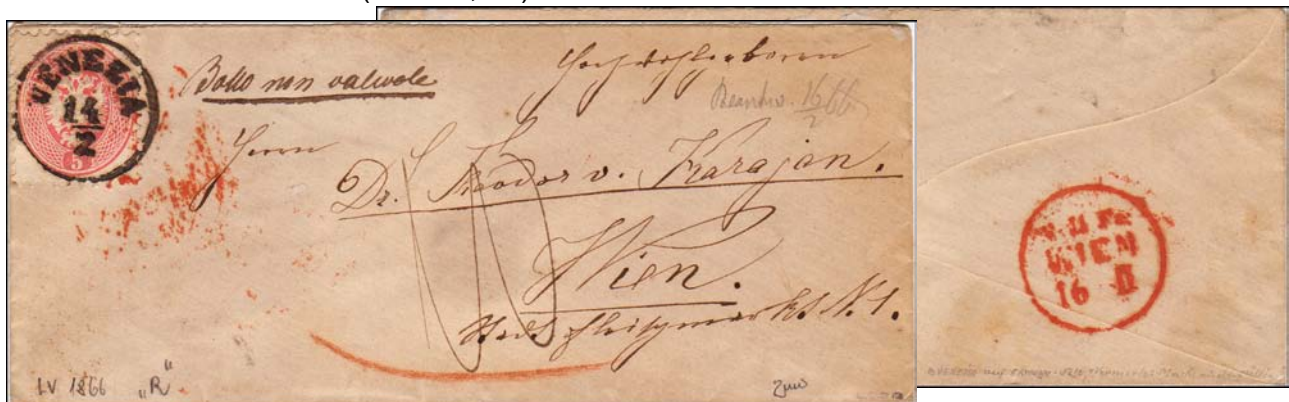 VENEZIA
14
2
5
Bollo non valevole
Hochwohlgeboren
16/2 66
Herrn
Dr. Theodor v. Karajan.
Wien.
Stadt Fleischmarkt N. 1.
LV 1866 „R“
WIEN
16 II